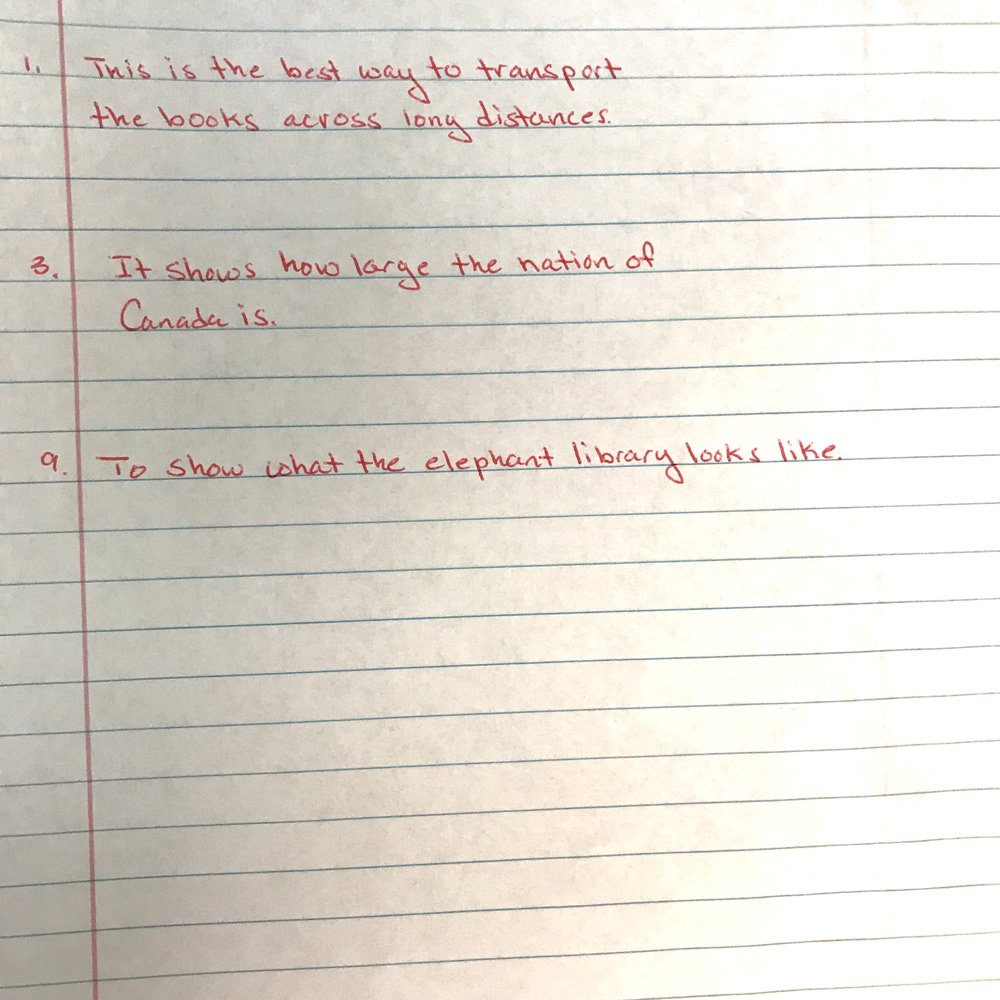 1. This is the best way to transport
the books across long distances.
3. It shows how large the nation of
Canada is.
9. To show what the elephant library looks like.